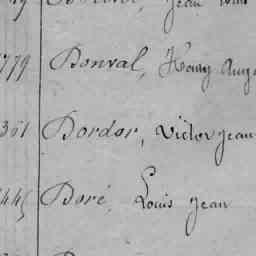 779 Bonval, Henry Aug
361 Dordor, Victor Jean
445 Doré, Louis Jean